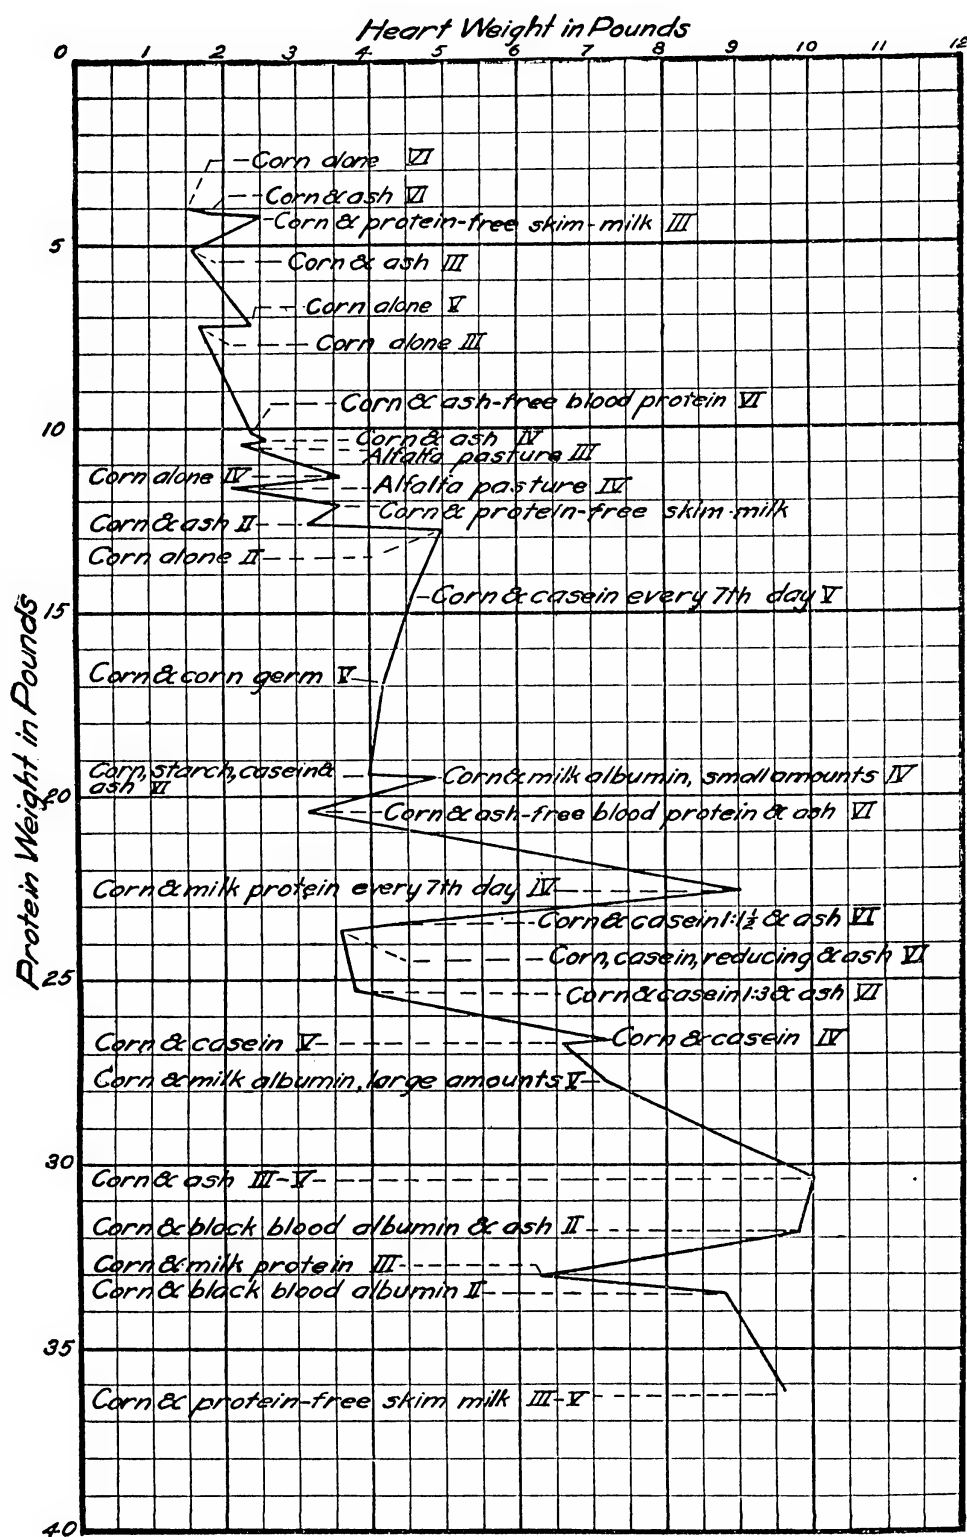 Heart Weight in Pounds
0 1 2 3 4 5 6 7 8 9 10 11 12
Corn alone VI
Corn & ash VI
Corn & protein-free skim-milk III
5
Corn & ash III
Corn alone V
Corn alone III
Corn & ash-free blood protein VI
10
Corn & ash IV
Alfalfa pasture III
Corn alone IV
Alfalfa pasture IV
Corn & protein-free skim-milk
Corn & ash II
Corn alone II
Corn & casein every 7th day V
15
Corn & corn germ V
Corn, starch, casein &
ash VI
Corn & milk albumin, small amounts IV
20
Corn & ash-free blood protein & ash VI
Corn & milk protein every 7th day IV
Corn & casein 1:1½ & ash VI
Corn, casein, reducing & ash VI
25
Corn & casein 1:3 & ash VI
Corn & casein IV
Corn & casein V
Corn & milk albumin, large amounts V
30
Corn & ash III-V
Corn & black blood albumin & ash II
Corn & milk protein III
Corn & black blood albumin II
35
Corn & protein-free skim milk III-V
40
Protein Weight in Pounds